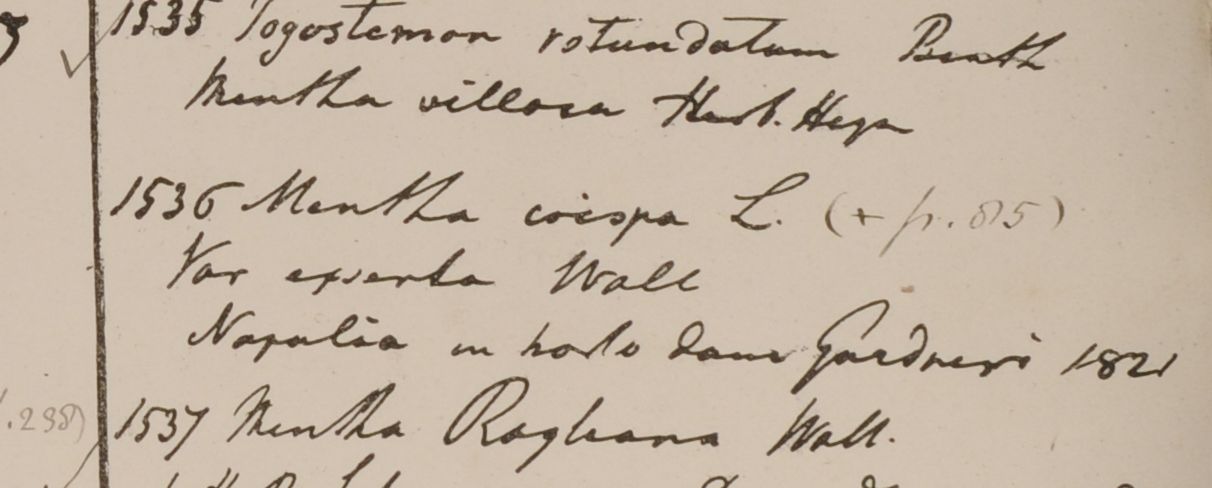 1535 Pogostemon rotundatum Benth
Mentha villosa Herb. Heyn
1536 Mentha crispa L. (+ p. 85)
Var exserta Wall
Napalia in horto dom Gardneri 1821
.238)
1537 Mentha Royleana Wall.